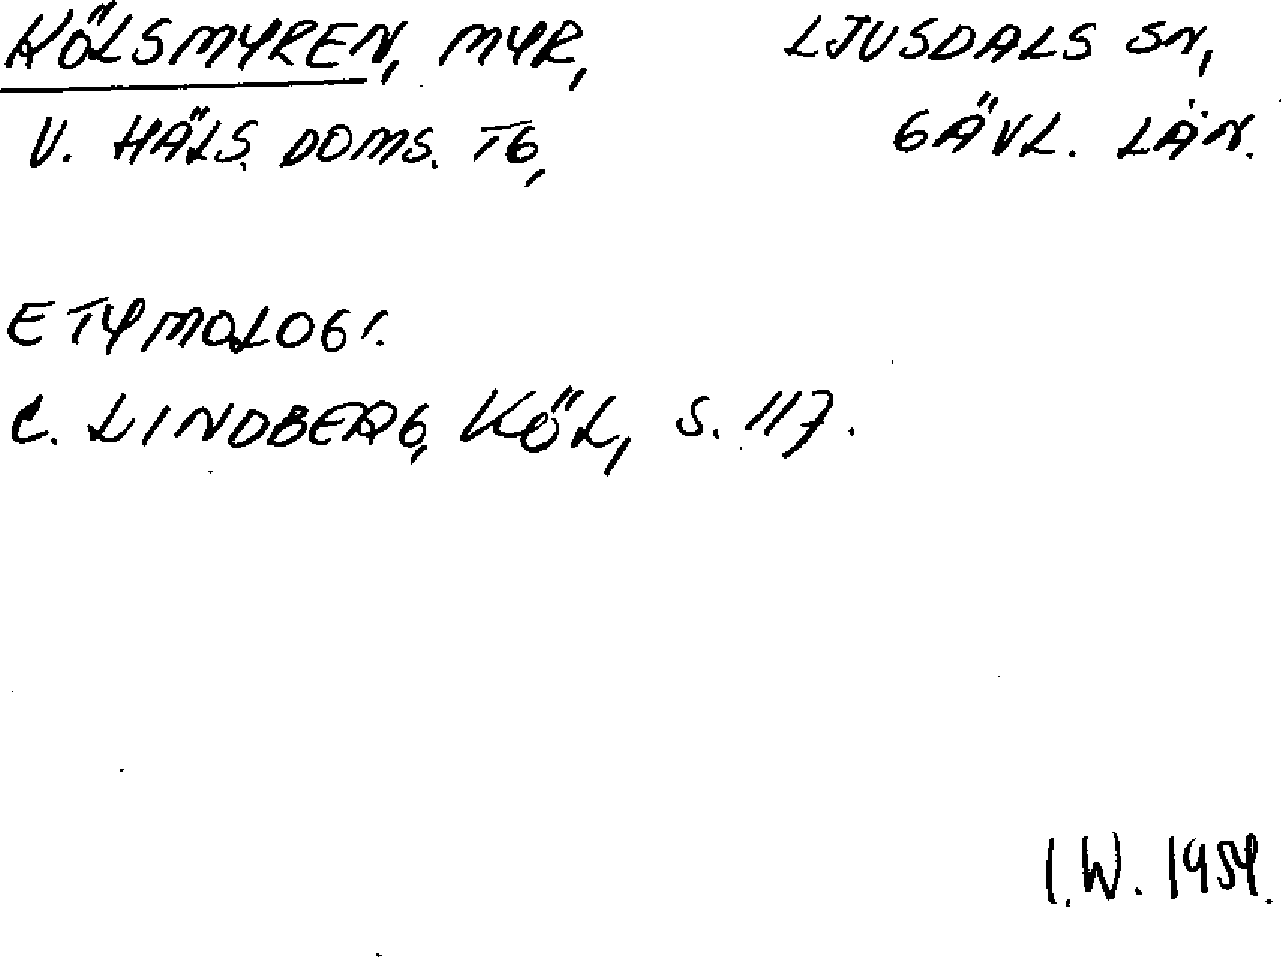 KÖLSMYREN, MYR, LJUSDALS SN,
V. HÄLS. DOMS. TG, GÄVL. LÄN.
ETYMOLOGI.
C. LINDBERG, KÖL, S. 117.
I.W. 1959.